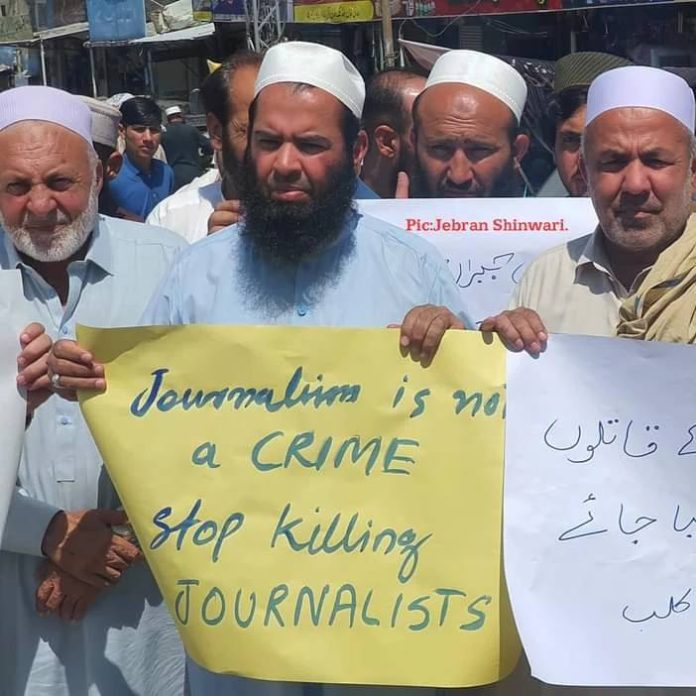 Pic:Jebran Shinwari.
Journalism is not
a CRIME
Stop killing
JOURNALISTS
کے قاتلوں
جائے
کلب